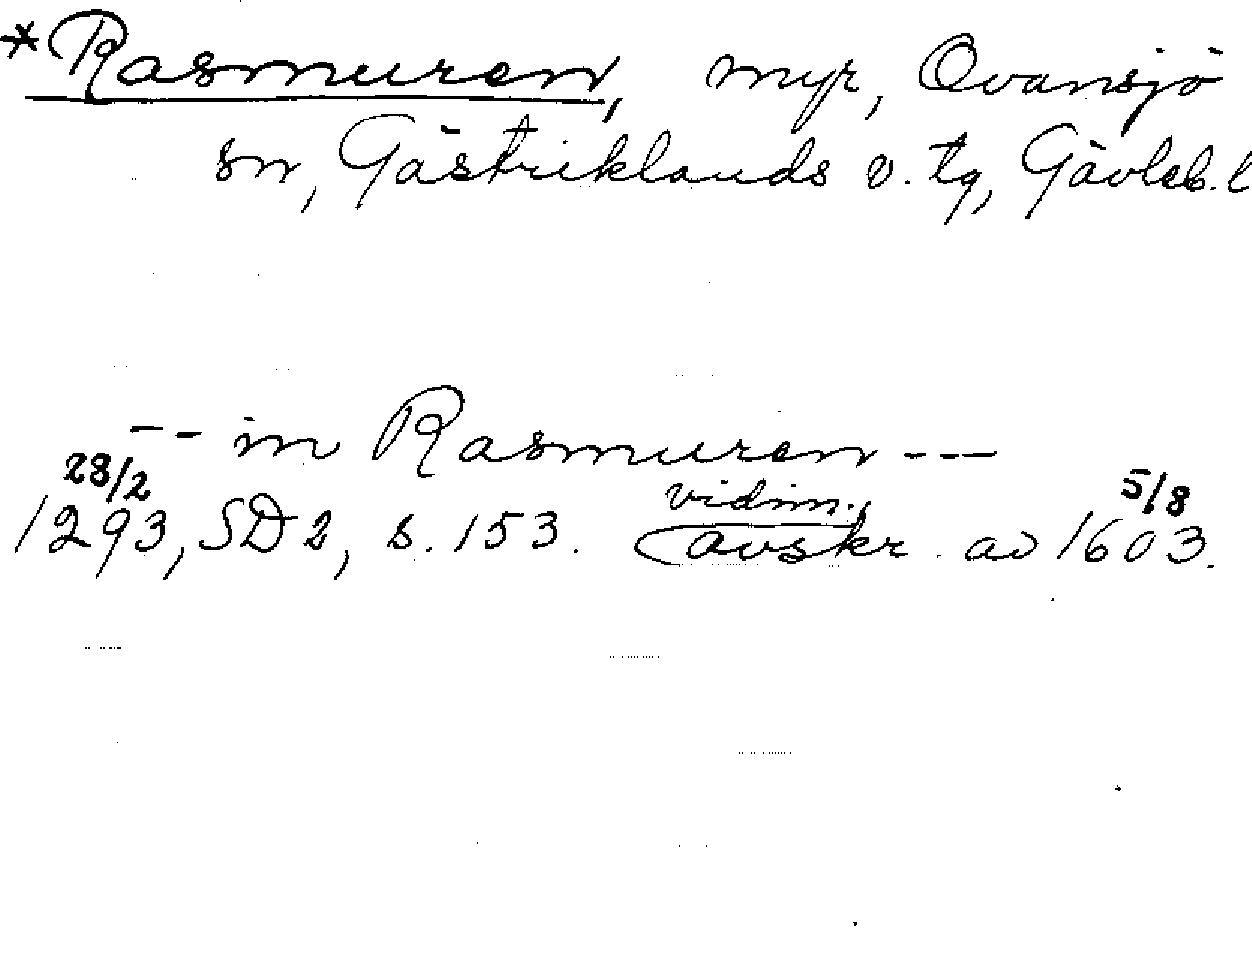 *Rasmuren, myr, Ovansjö
sn, Gästriklands v. tg, Gävleb. l
-- in Rasmuren ---
28/2 vidim. 5/8
1293, SD 2, s. 153. avskr. av 1603.